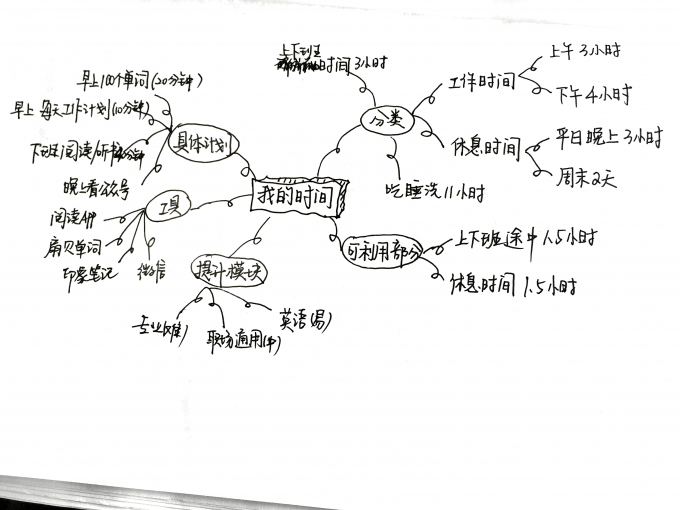 我的时间
分类
上下班
时间3小时
工作时间
上午3小时
下午4小时
休息时间
平日晚上3小时
周末2天
吃睡洗11小时
可利用部分
上下班途中1.5小时
休息时间1.5小时
提升模块
英语(易)
职场通用(中)
专业(难)
工具
阅读APP
扇贝单词
印象笔记
微信
具体计划
早上100个单词(20分钟)
早上每天工作计划(10分钟)
下班阅读/听书
分钟
晚上看公众号